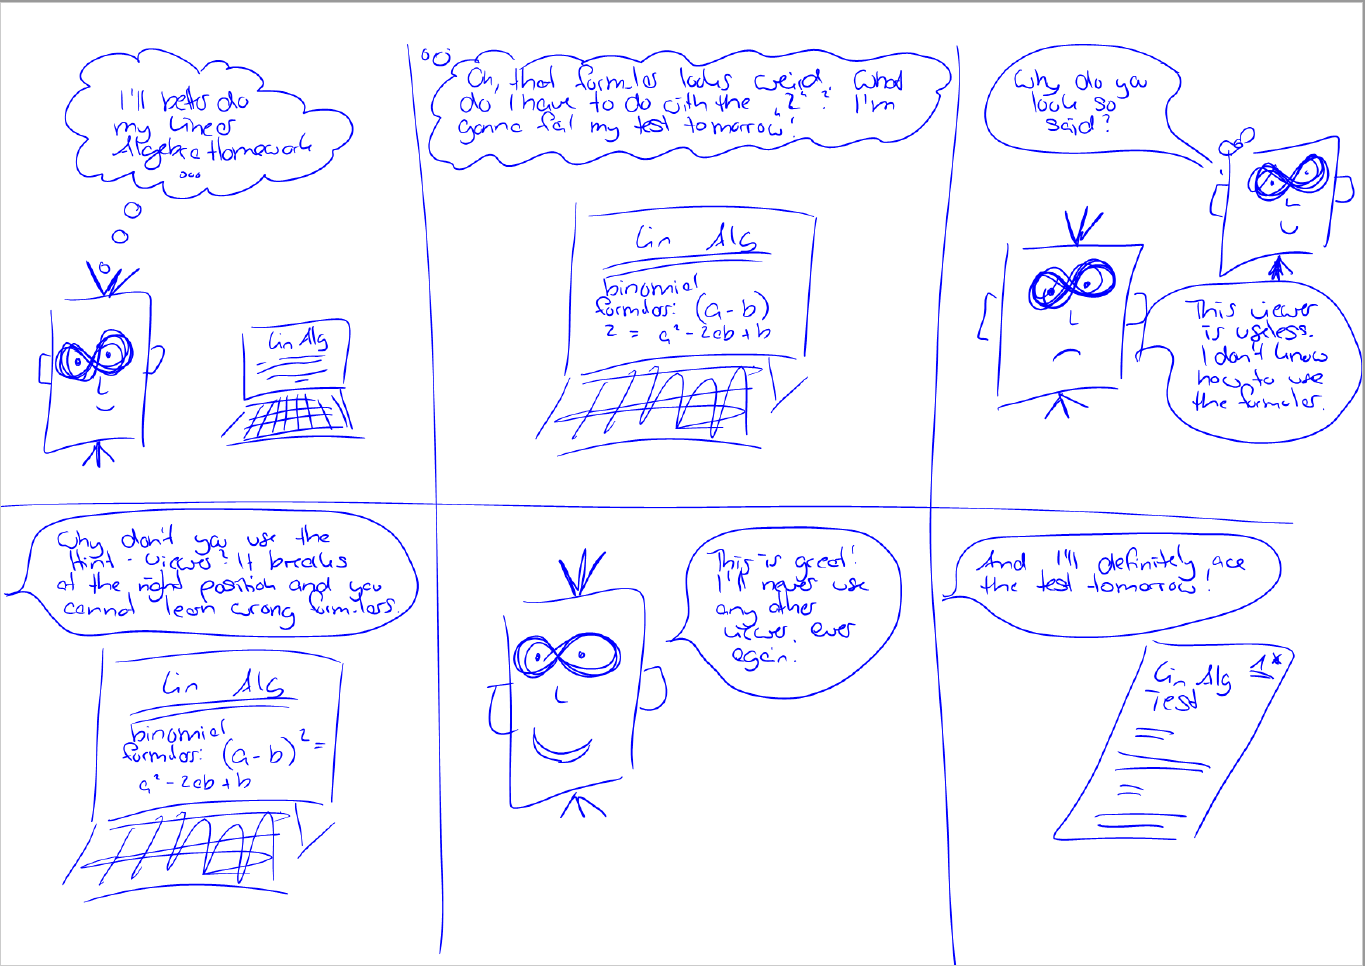 I'll beter do
my Linear
Algebra Homework
...
Lin Alg
Oh, that formular looks weird. What
do I have to do with the "2"? I'm
gonna fail my test tomorrow!
Lin Alg
binomial
formulars: (a-b)
2 = a² - 2ab + b
Why do you
look so
said?
This viewer
is useless.
I don't know
how to use
the formular.
Why don't you use the
Hint-Viewer? It breaks
at the right position and you
cannot learn wrong formulars.
Lin Alg
binomial
formulars: (a-b)² =
a² - 2ab + b
This is great!
I'll never use
any other
viewer, ever
again.
And I'll definitely ace
the test tomorrow!
Lin Alg 1*
Test